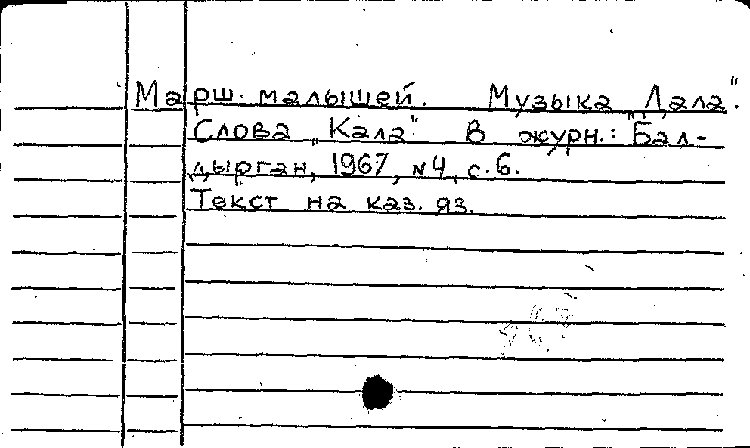 Марш малышей. Музыка „Дала".
Слова „Кала" В журн.: Бал-
дырган, 1967, №4, с.6.
Текст на каз. яз.